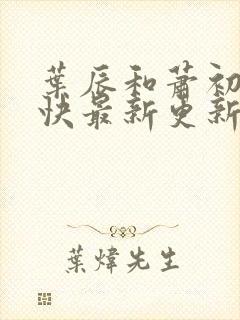 葉辰和蕭初
快最新更新
葉煒先生